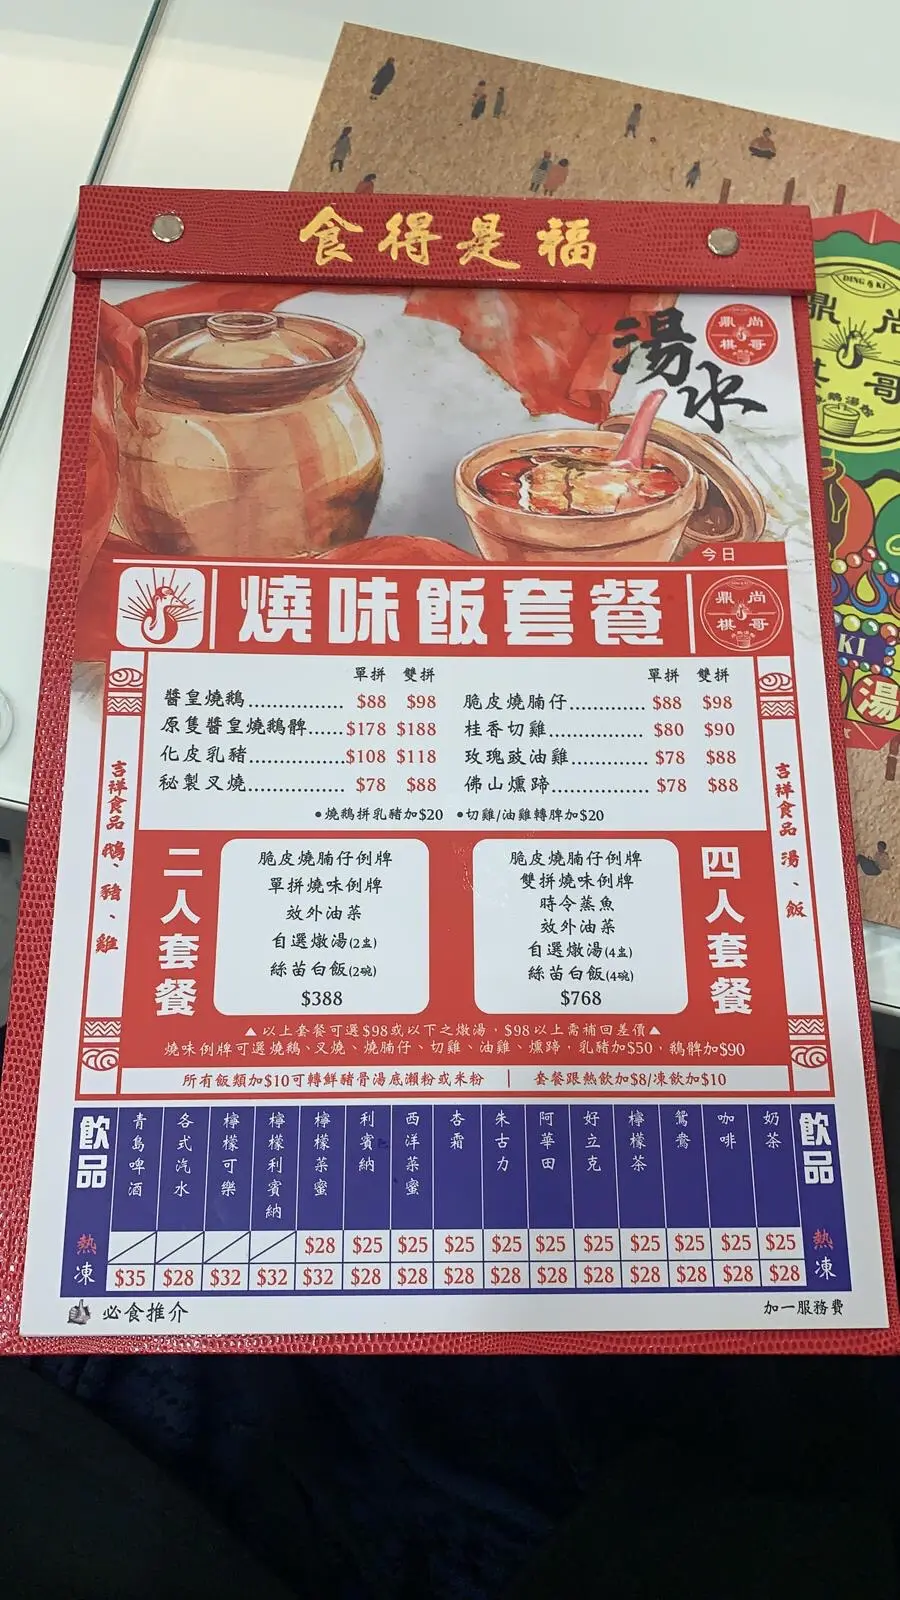 食得是福
DING KI
鼎尚
棋哥
湯水
鼎尚
棋哥
今日
燒味飯套餐
鼎尚
棋哥
單拼 雙拼
醬皇燒鵝 $88 $98
原隻醬皇燒鵝髀 $178 $188
化皮乳豬 $108 $118
秘製叉燒 $78 $88
單拼 雙拼
脆皮燒腩仔 $88 $98
桂香切雞 $80 $90
玫瑰豉油雞 $78 $88
佛山燻蹄 $78 $88
•燒鵝拼乳豬加$20 •切雞/油雞轉脾加$20
吉祥食品 鴨、豬、雞
吉祥食品 湯、飯
二人套餐
脆皮燒腩仔例牌
單拼燒味例牌
效外油菜
自選燉湯(2盅)
絲苗白飯(2碗)
$388
四人套餐
脆皮燒腩仔例牌
雙拼燒味例牌
時令蒸魚
效外油菜
自選燉湯(4盅)
絲苗白飯(4碗)
$768
▲以上套餐可選$98或以下之燉湯，$98以上需補回差價▲
燒味例牌可選燒鵝、叉燒、燒腩仔、切雞、油雞、燻蹄，乳豬加$50，鵝髀加$90
所有飯類加$10可轉鮮豬骨湯底瀨粉或米粉 | 套餐跟熱飲加$8/凍飲加$10
飲品 青島啤酒 各式汽水 檸檬可樂 檸檬利賓納 檸檬菜蜜 利賓納 西洋菜蜜 杏霜 朱古力 阿華田 好立克 檸檬茶 鴛鴦 咖啡 奶茶 飲品
熱 $28 $25 $25 $25 $25 $25 $25 $25 $25 $25 $25 熱
凍 $35 $28 $32 $32 $32 $28 $28 $28 $28 $28 $28 $28 $28 $28 $28 凍
必食推介
加一服務費
KI
湯